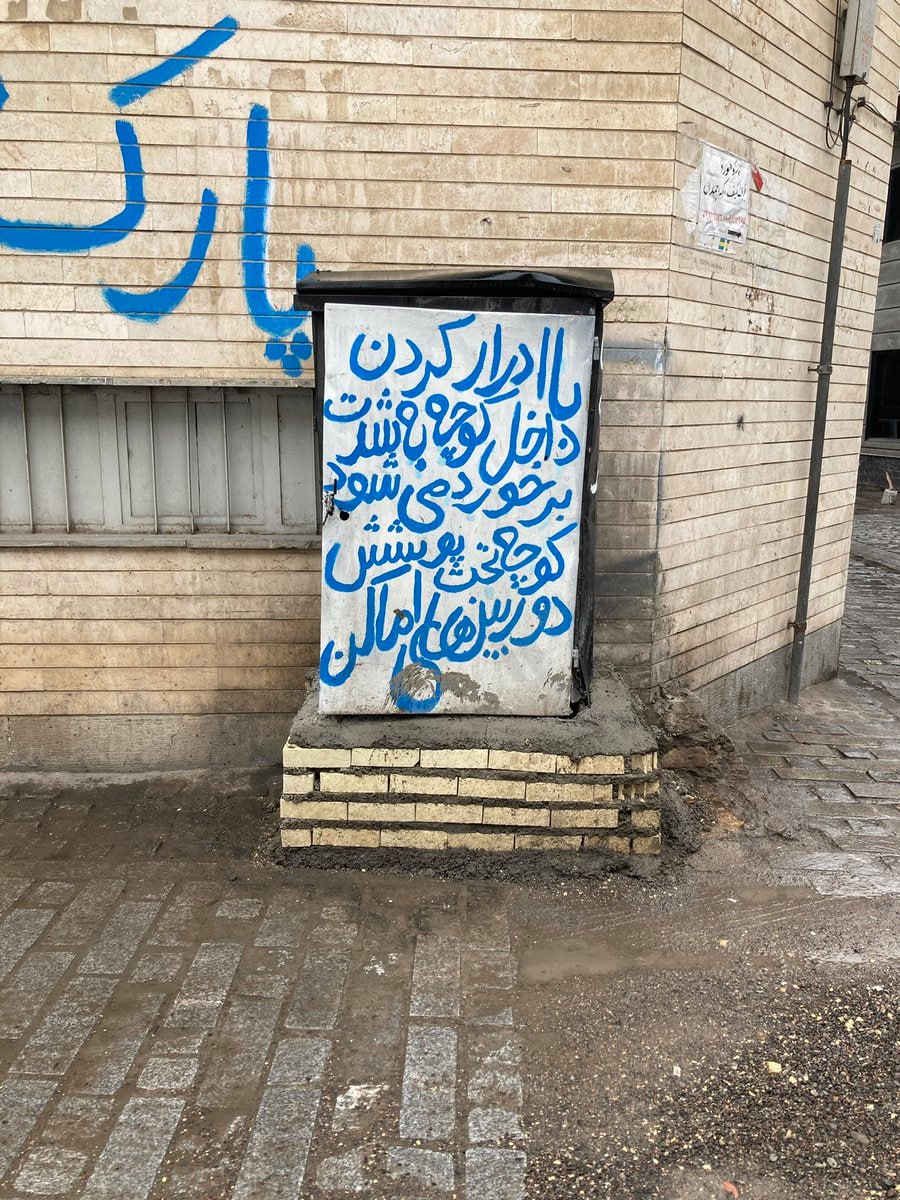 پارک
با ادرار کردن
داخل کوچه به شدت
برخورد می شود
کوچه تحت پوشش
دوربین های اماکن